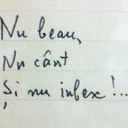 Nu beau,
Nu cânt
Și nu iubesc!..